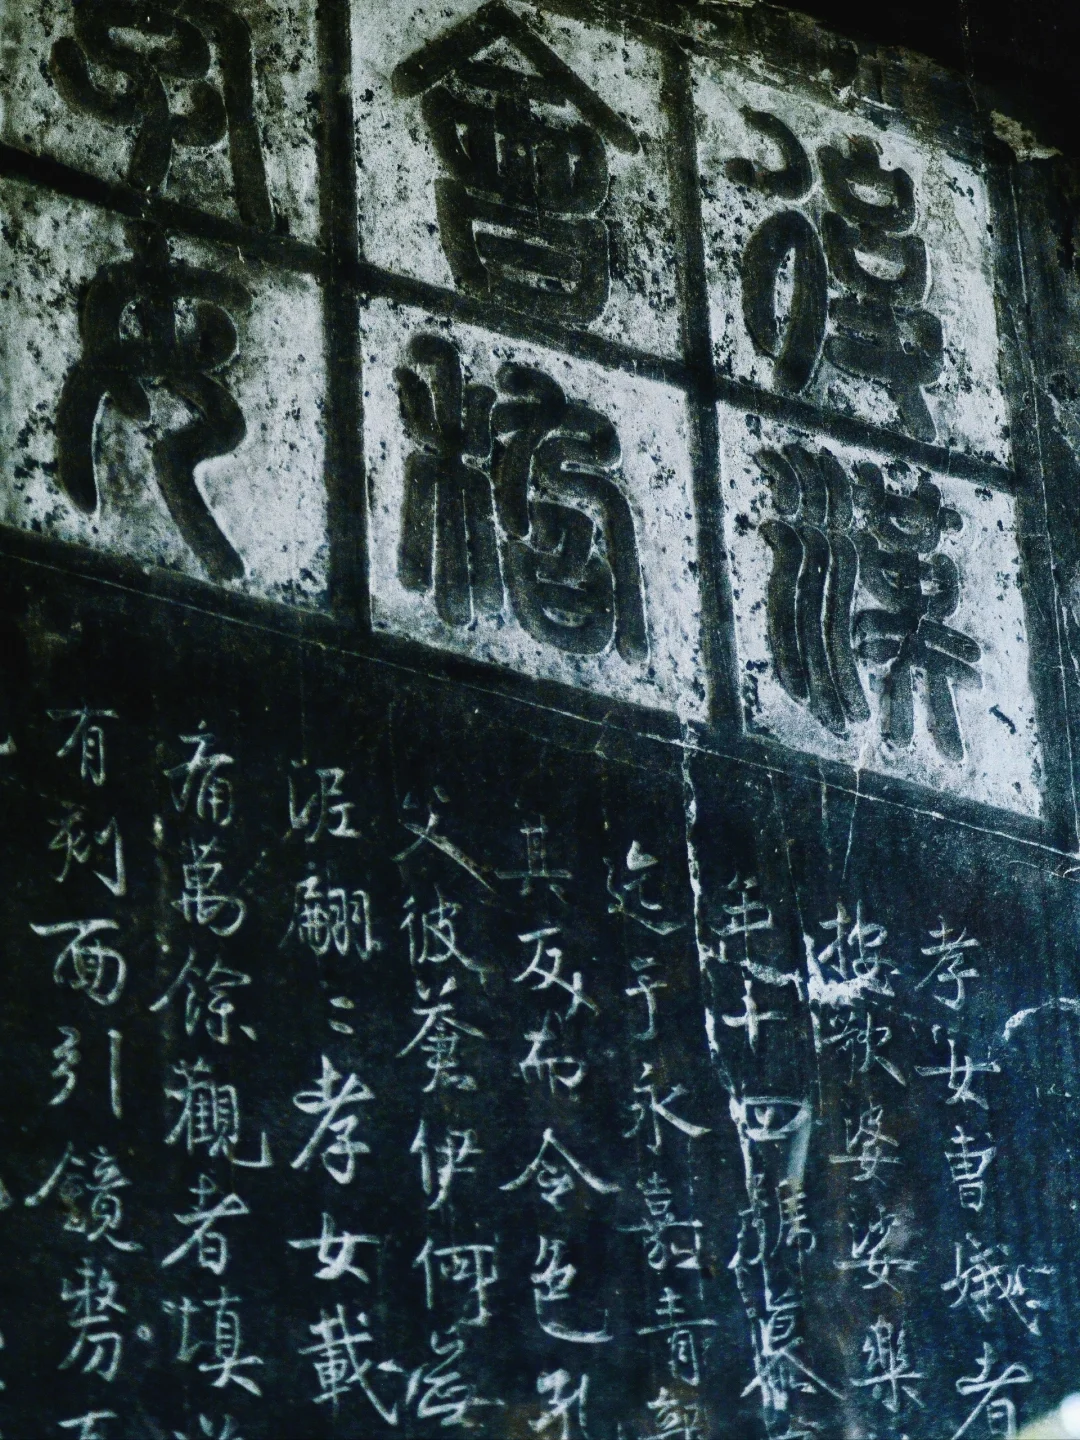 漢
會稽
孝女曹娥者
按歌婆娑樂
年十四號慕
迄于永嘉青
其反而令色孔
父彼蒼伊何無
泥翩〻孝女載
痛萬餘觀者填
有剋面引鏡剺